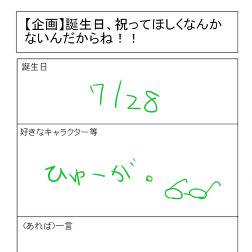 【企画】誕生日、祝ってほしくなんか
ないんだからね！！
誕生日
7/28
好きなキャラクター等
ひゅーが。
（あれば）一言